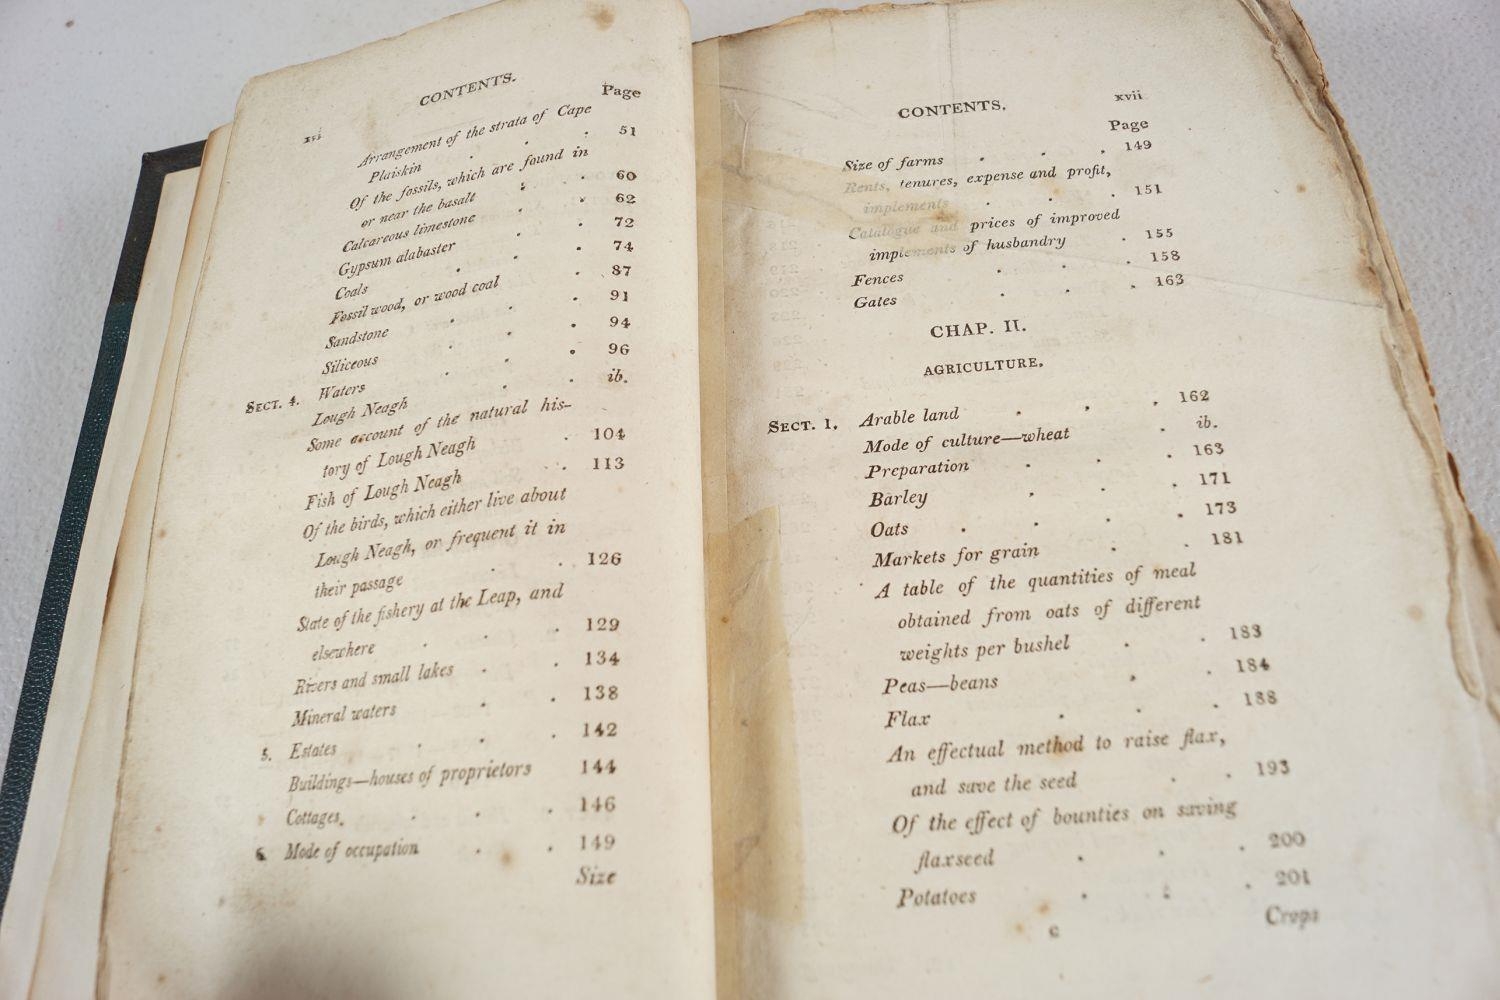 xvi
CONTENTS.
Page
Arrangement of the strata of Cape
Plaiskin . . . 51
Of the fossils, which are found in
or near the basalt . . 60
Calcareous limestone . . 62
Gypsum alabaster . . 72
Coals . . . 74
Fossil wood, or wood coal . 87
Sandstone . . . 91
Siliceous . . . 94
SECT. 4. Waters . . . 96
Lough Neagh . . ib.
Some account of the natural his-
tory of Lough Neagh . 104
Fish of Lough Neagh . . 113
Of the birds, which either live about
Lough Neagh, or frequent it in
their passage . . 126
State of the fishery at the Leap, and
elsewhere . . . 129
Rivers and small lakes . . 134
Mineral waters . . 138
5. Estates . . . 142
Buildings—houses of proprietors 144
Cottages . . . 146
6. Mode of occupation . . 149
Size
CONTENTS.
xvii
Page
Size of farms . . . 149
Rents, tenures, expense and profit,
implements . . . 151
Catalogue and prices of improved
implements of husbandry . 155
Fences . . . 158
Gates . . . 163
CHAP. II.
AGRICULTURE.
SECT. 1. Arable land . . . 162
Mode of culture—wheat . ib.
Preparation . . . 163
Barley . . . 171
Oats . . . . 173
Markets for grain . . 181
A table of the quantities of meal
obtained from oats of different
weights per bushel . . 183
Peas—beans . . 184
Flax . . . 188
An effectual method to raise flax,
and save the seed . . 193
Of the effect of bounties on saving
flaxseed . . . 200
Potatoes . . . 201
c
Crops